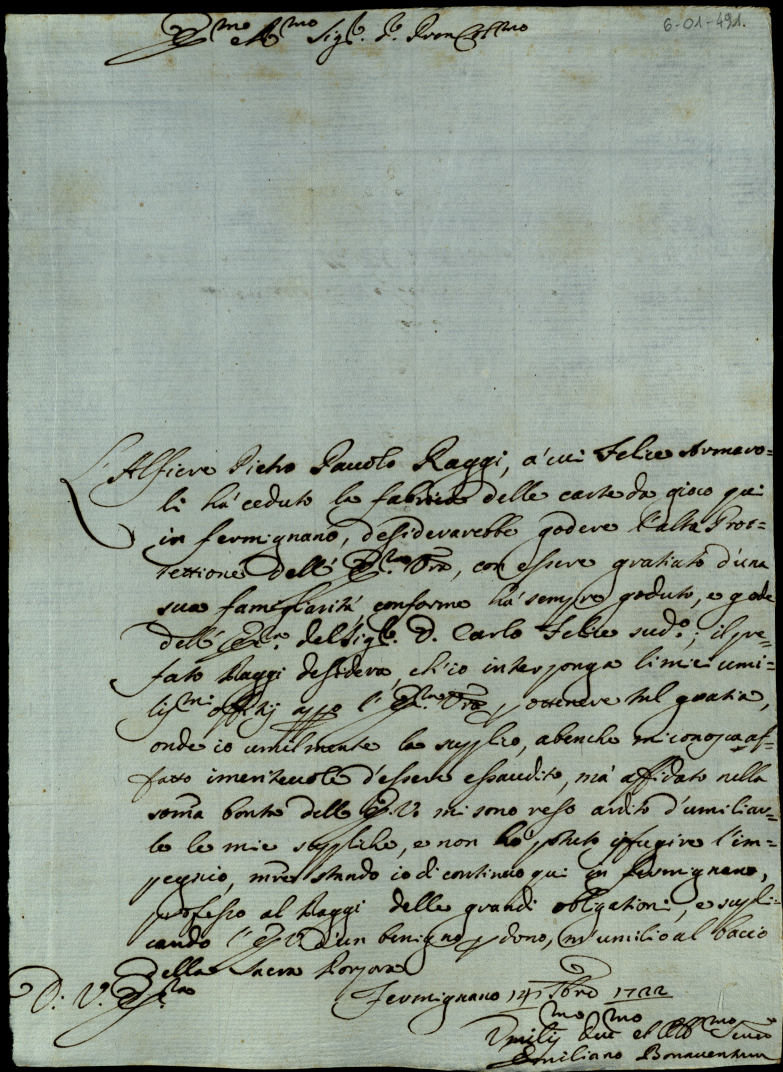 6-01-491.
E.mo e R.mo Sig.r Pron Col.mo
L'Alfiere Pietro Pauolo Raggi, à cui Felice Armaro=
li hà ceduto la fabrica delle carte da gioco qui
in fermignano, dessiderarebbe godere l'alta Prot=
tettione dell' E.za V'ra, con essere gratiato d'una
sua fameglarità conforme hà sempre goduto, e gode
dell' Ecc.za del Sig.r D. Carlo Felice sud.o; il pre=
fato Raggi dessidera, ch'io interponga li miei umi=
liss.mi offitij app.o l' E.za V'ra, p ottenere tal gratia,
onde io umilmente la supplico, abenche mi conosca af=
fatto imeriteuole d'essere essaudito, mà affidato nella
som̃a bontà dell' E. V. mi sono reso ardito d'umiliar=
le le mie suppliche, e non ho potuto isfugire l'im=
pegnio, m̃re stando io di continuo qui in fermignano,
professo al Raggi delle grandi obligationi, e suppli=
cando l' E. V. d'un benigno p dono, m'umilio al baccio
della Sacra Porpora
D: V. E.za
Fermignano 14 1722
Umilis.mo Deu.mo et Obb.mo Seruo
Emiliano Bonauentura